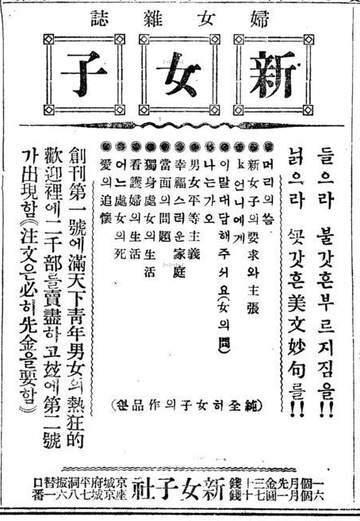 婦女雜誌
新女子
들으라 불갓흔부르지짐을!!
닑으라 ᄭᅩᆺ갓흔美文妙句를!!
●新女子의要求와主張
●K언니에게
●이말대답해주서요(女의問)
●나는가오
●男女平等主義
●幸福스러운家庭
●當面의問題
●獨身處女의生活
●看護婦의生活
●어느處女의死
●愛의追懷
(純全히女子의作品만)
創刊第一號에滿天下青年男女의熱狂的
歡迎裡에二千部를賣盡하고玆에第二號
가出現함(注文은必히先金을要함)
一個月先金三十錢
六個月一圓七十錢
新女子社